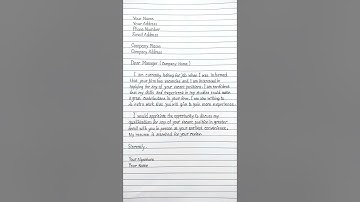 Your Name
Your Address
Phone Number
Email Address
Company Name
Company Address
Dear Manager (Company Name)
I am currently looking for job when I was informed
that your firm has vacancies and I am interested in
applying for any of your vacant positions. I am confident
that my skills and experience in my studies could make a
great contributions to your firm. I am also willing to
do extra work that you will give to gain more experience.
I would appreciate the opportunity to discuss my
qualifications for any of your vacant position in greater
detail with you in person at your earliest convenience.
My resume is attached for your review.
Sincerely,
Your Signature
Your Name